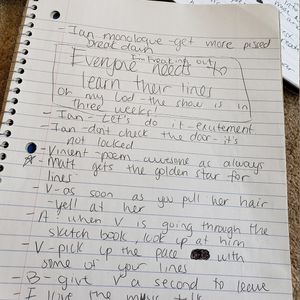 - Ian monologue - get more pissed
break down
I'm freaking out
Everyone needs to
learn their lines
oh my God - the show is in
three weeks!
- Ian - Let's do it - excitement
- Ian - don't check the door - it's
not locked
- Vincent - poem awesome as always
- Matt gets the golden star for
lines
- V - as soon as you pull her hair
- yell at her
- A: when V is going through the
sketch book, look up at him
- V - pick up the pace with
some of your lines
- B - give V a second to leave
- I love the music